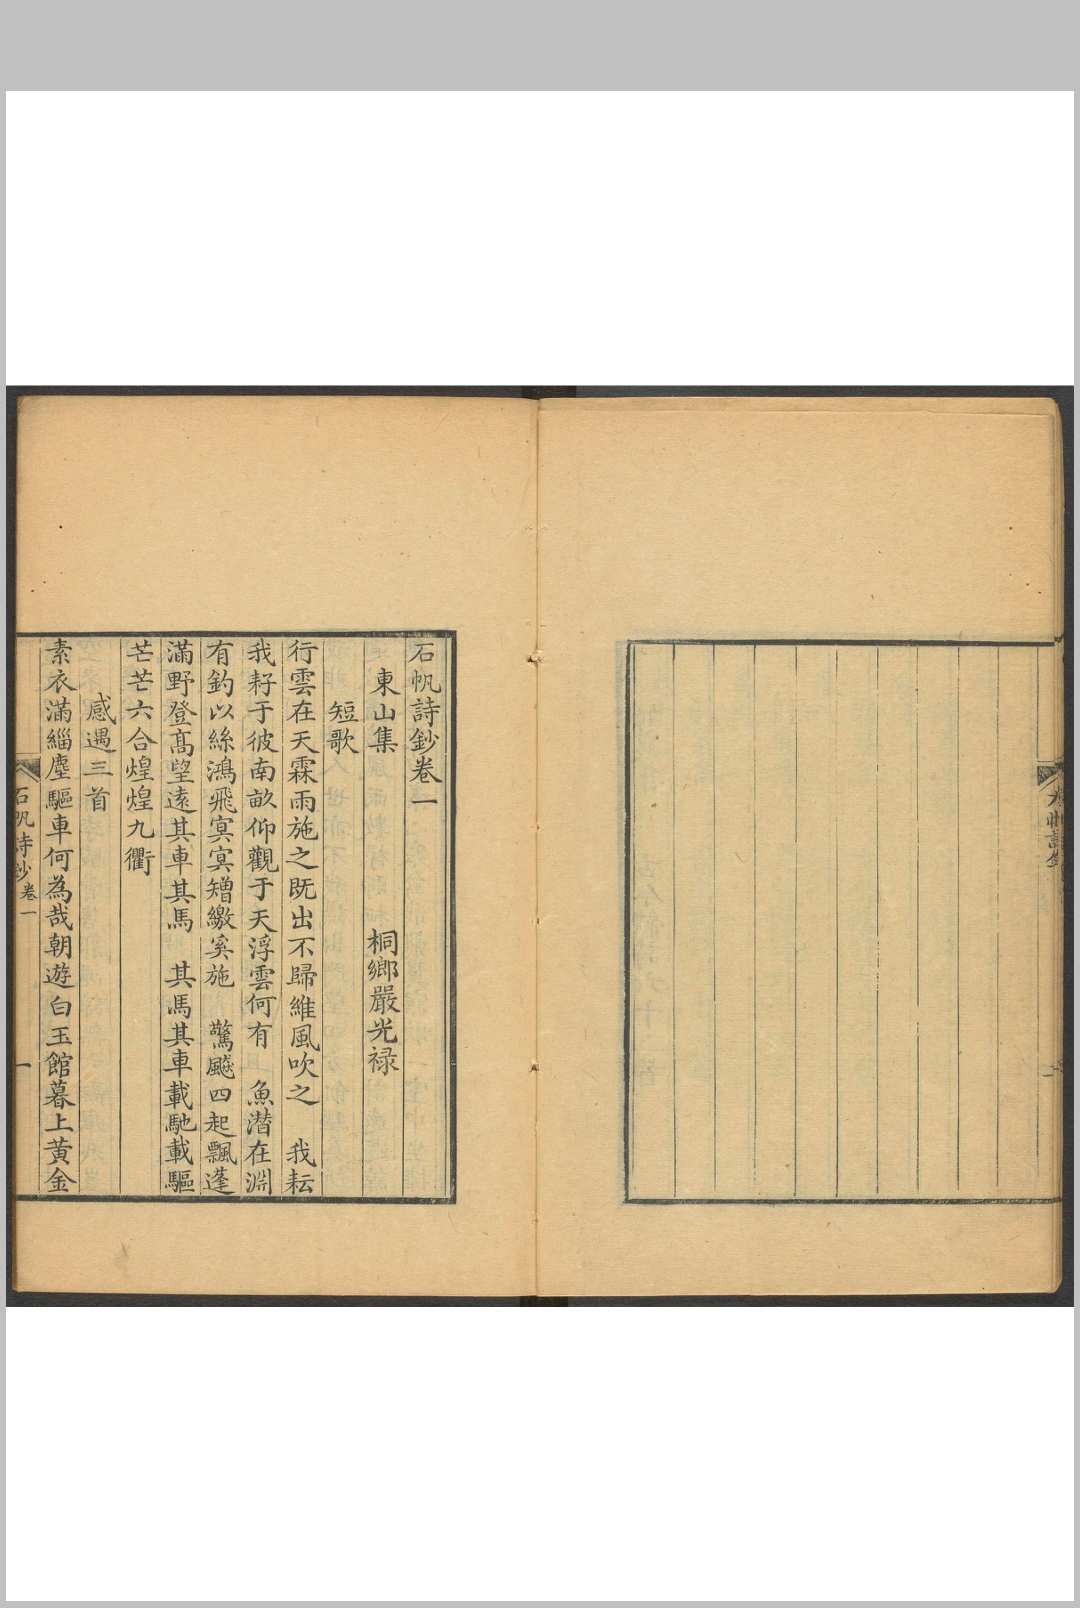 石帆詩鈔卷一
東山集 桐鄉嚴光祿
短歌
行雲在天霖雨施之既出不歸維風吹之 我耘
我耔于彼南畝仰觀于天浮雲何有 魚潛在淵
有釣以絲鴻飛冥冥矰繳奚施 驚飈四起飄蓬
滿野登高望遠其車其馬 其馬其車載馳載驅
芒芒六合煌煌九衢
感遇三首
素衣滿緇塵驅車何為哉朝遊白玉館暮上黃金
石帆詩鈔卷一 一